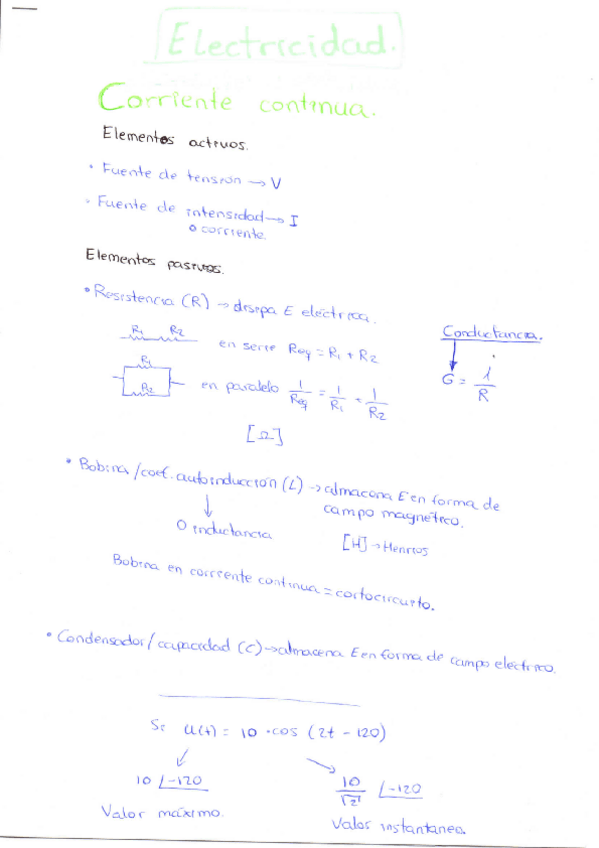 Electricidad.
Corriente continua.
Elementos activos.
• Fuente de tensión → V
• Fuente de intensidad → I
o corriente.
Elementos pasivos.
• Resistencia (R) → disipa E eléctrica.
R1 R2 en serie Req = R1 + R2
Conductancia.
G = i/R
R1
R2 en paralelo 1/Req = 1/R1 + 1/R2
[Ω]
• Bobina / coef. autoinducción (L) → almacena E en forma de
campo magnético.
O inductancia
[H] → Henrios
Bobina en corriente continua = cortocircuito.
• Condensador / capacidad (C) → almacena E en forma de campo eléctrico.
Si u(t) = 10 · cos (2t - 120)
10 ∠-120
10/√2 ∠-120
Valor máximo.
Valor instantaneo.